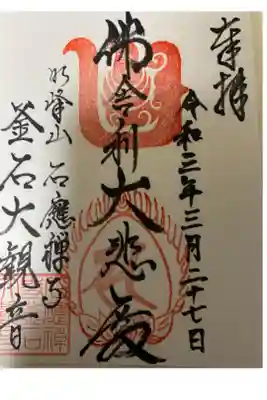 奉拝
令和三年三月二十七日
佛舎利大悲愛
明峰山石應禅寺
釜石大観音